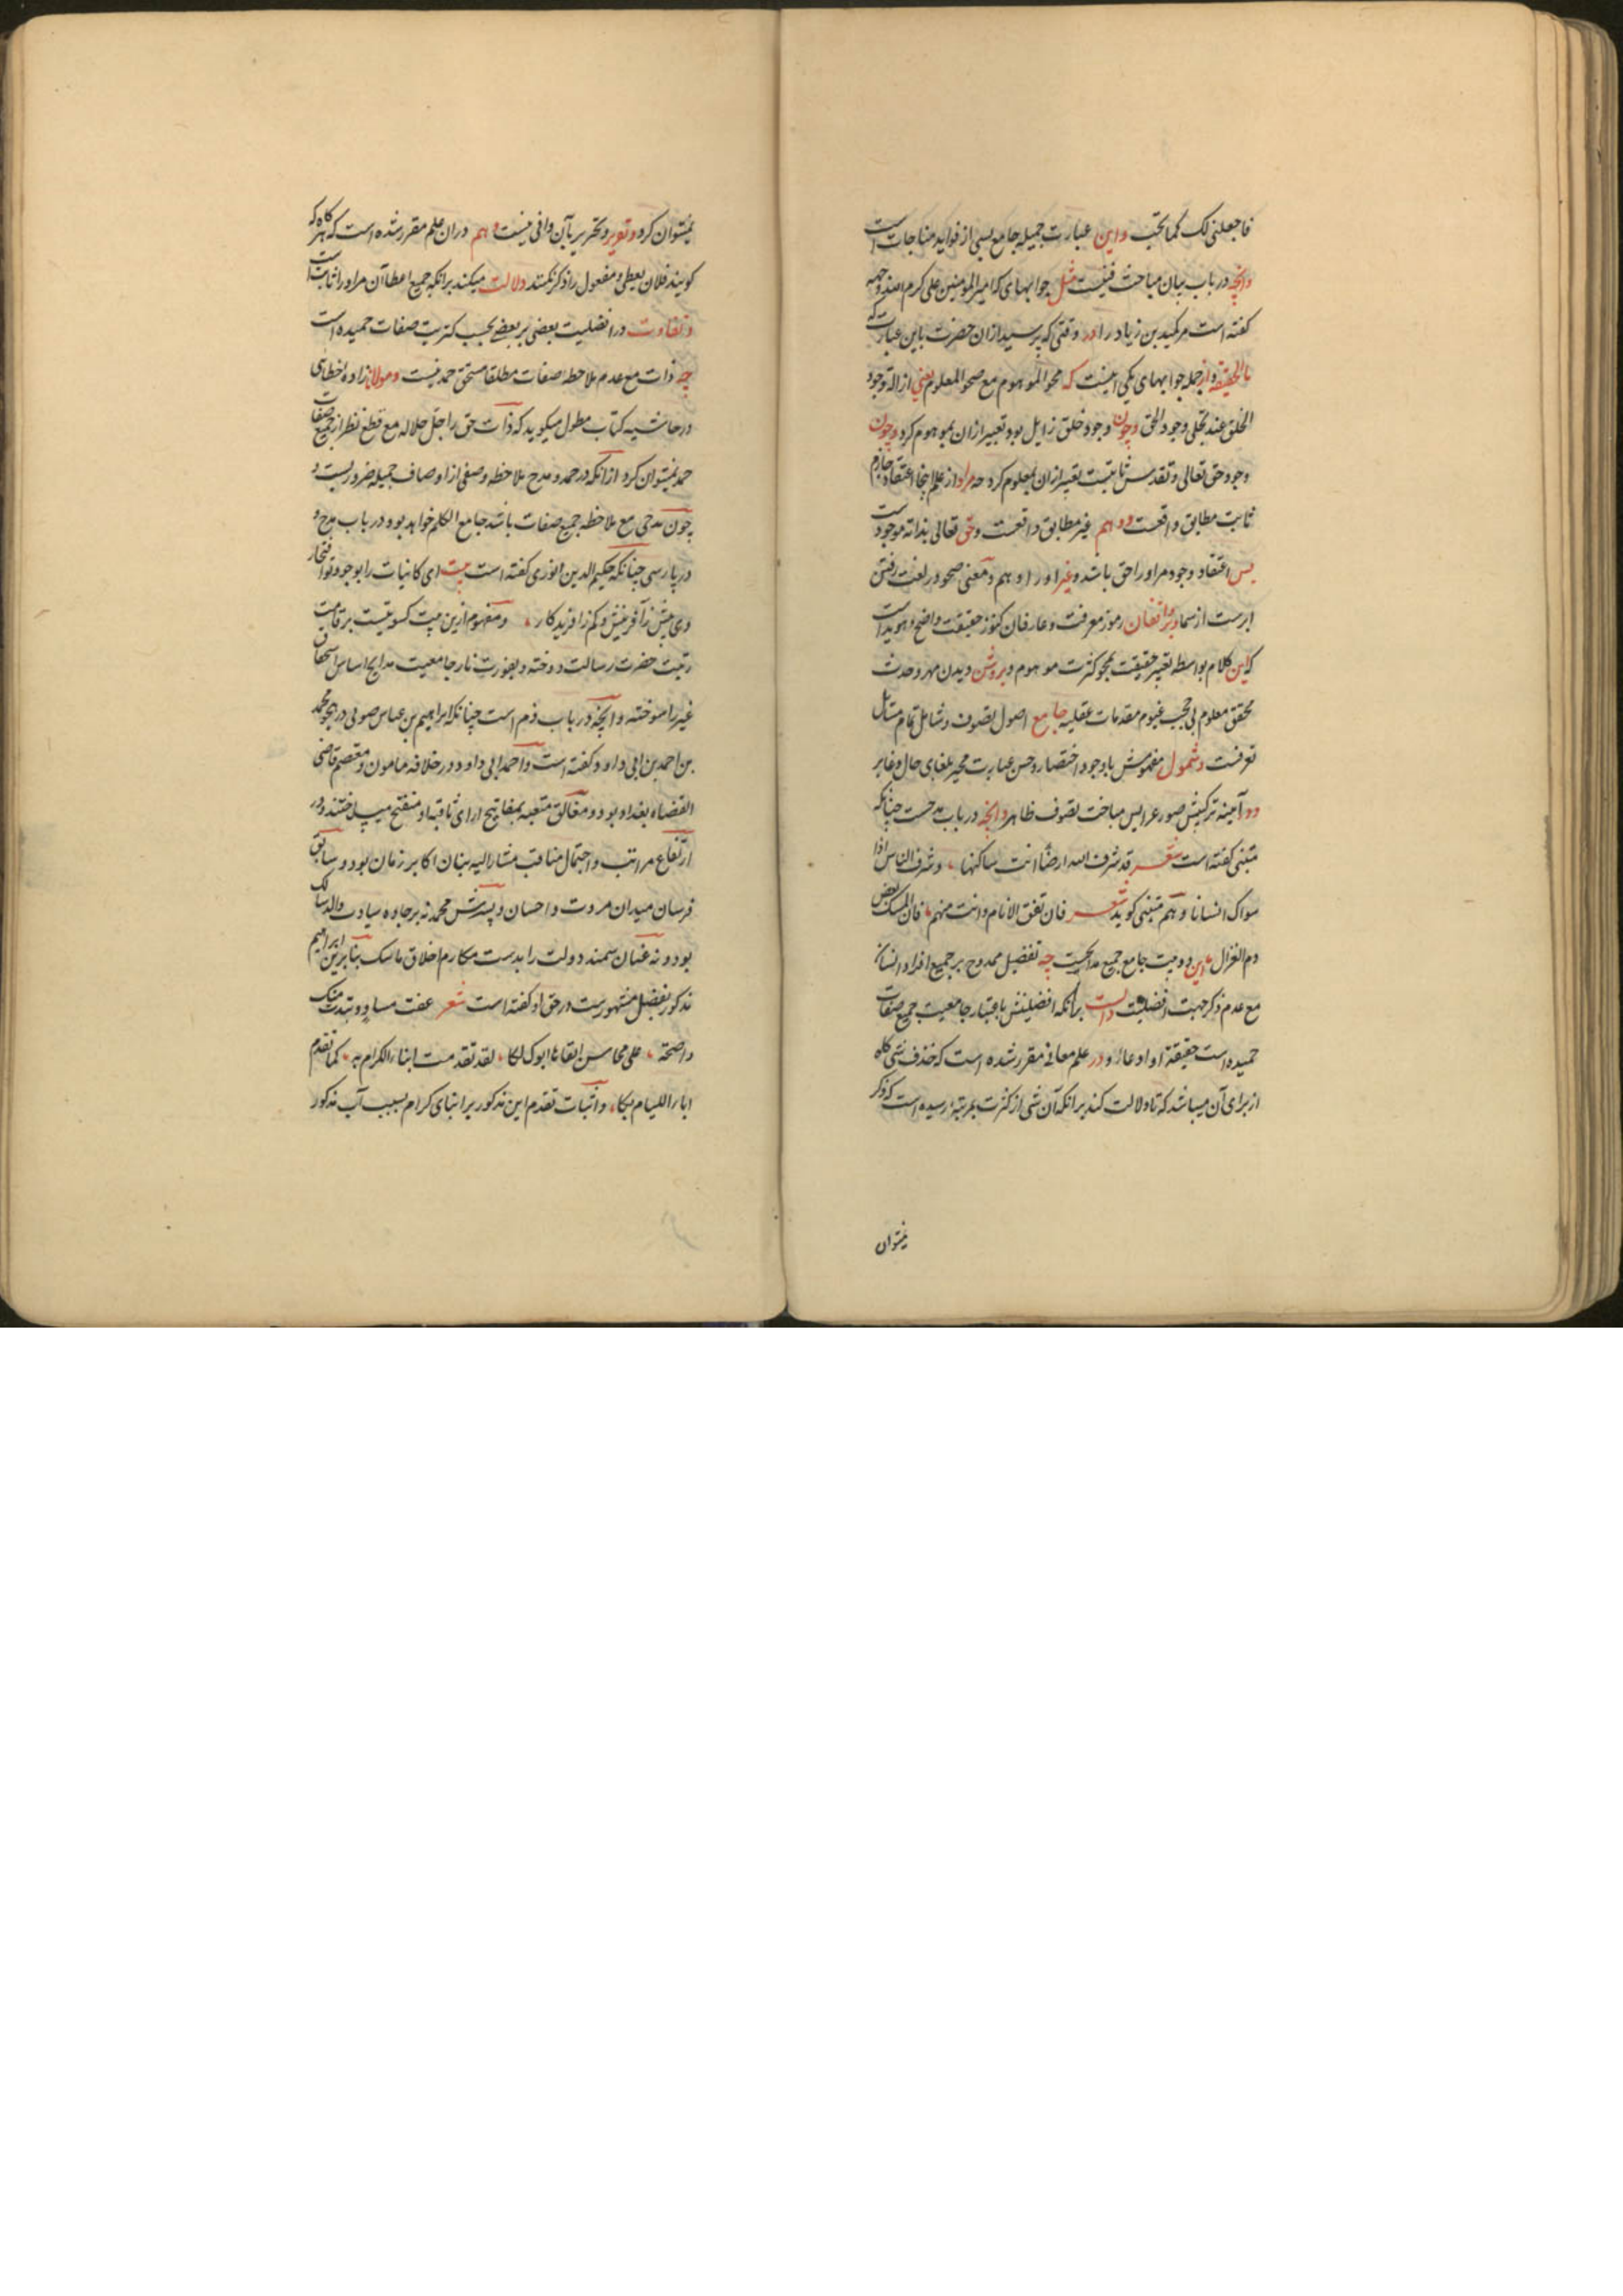 فاجعلنی لک کما تحب واین عبارت جمیله جامع بسی از فواید مناجات است
وانچه در باب بیان مباحث فیست مثل جوابهای که امیرالمومنین علی کرم الله وجهه
کفته است مر کمیل بن زیاد را در وقتی که پرسید ازان حضرت باین عبارت که
ما الحقیقه واز جمله جوابهای یکی اینست که محو الموهوم مع صحو المعلوم یعنی ازالة وجود
الخلق عند تجلی وجود الحق وچون وجود خلق زایل بود تعبیر ازان بموهوم کرد وچون
وجود حق تعالی وتقدس ثابتست تعبیر ازان بمعلوم کرد چه مراد از علم اینجا اعتقاد جازم
ثابت مطابق واقعست ووهم غیر مطابق واقعست وحق تعالی بذاته موجود است
پس اعتقاد وجود مر اورا حق باشد وغیر اورا وهم ومعنی صحو در لغت رفتن
ابرست از سما وبر واقفان رموز معرفت وعارفان کنوز حقیقت واضح وهویداست
که این کلام بواسطه تعبیر حقیقت بمحو کثرت موهوم وبروشن دیدن مهر وحدت
محقق معلوم بی حجب غیوم مقدمات عقلیه جامع اصول تصوف وشامل تمام مسائل
تعرفست وشمول مفهومش با وجود اختصار وحسن عبارت محیر بلغای حال وغابر
ودر آینه ترکیبش صور عرایس مباحث تصوف ظاهر وانچه در باب مدحست چنانکه
متنبی کفته است شعر قد شرف الله ارضا انت ساکنها ، وشرف الناس اذ
سواک انسانا وهم متنبی کوید شعر فان تفق الانام وانت منهم ، فان المسک بعض
دم الغزال این دو بیت جامع جمیع مدایحست چه تفضیل ممدوح بر جمیع افراد انسان
مع عدم ذکر جهت افضلیت دالست برانکه افضلیتش باعتبار جامعیت جمیع صفات
حمیده است حقیقة او ادعاء ودر علم معانی مقرر شده است که حذف شی کاه
از برای آن میباشد که تا دلالت کند برانکه آن شی از کثرت بمرتبه رسیده است که ذکر
نمیتوان
نمیتوان کرد وتقریر وتحریر بآن وافی نیست وهم دران علم مقرر شده است که هرکاه که
کویند فلان یعطی ومفعول را ذکر نکنند دلالت میکند برانکه جمیع اعطاآن مر اورا ثابتست
وتفاوت در افضلیت بعضی بر بعضی بحسب کثرت صفات حمیده است
چه ذات مع عدم ملاحظه صفات مطلقا مستحق حمد نیست ومولانازاده خطای
در حاشیه کتاب مطول میکوید که ذات حق را جل جلاله مع قطع نظر از جمیع صفات
حمد نمیتوان کرد ازانکه در حمد ومدح ملاحظه وصفی از اوصاف جمیله ضروریست و
چون مدحی مع ملاحظه جمیع صفات باشد جامع الکلم خواهد بود در باب مدح و
در پارسی چنانکه حکیم الدین انوری کفته است بیت ای کاینات را بوجود تو افتخار
وی بیش از آفرینش وکم ز آفریدکار ، ومفهوم ازین بیت کسوتیست بر قامت
رتبت حضرت رسالت دوخته وبضرورت نار جامعیت مدایح اساس استحقاق
غیر را سوخته وانچه در باب ذم است چنانکه ابراهیم بن عباس صولی در هجو محمد
بن احمد بن ابی داود کفته است واحمد ابی داود در خلافه مامون ومعتصم قاضی
القضاه بغداد بود ومغالق متعبه بمفاتیح ارای ثاقبه او منفتح میساختند ودر
ارتفاع مراتب واحتمال مناقب مشارالیه بنان اکابر زمان بود وسابق
فرسان میدان مروت واحسان وپسرش محمد نه بر جاده سیادت والد سالک
بود ونه عنان سمند دولت را بدست مکارم اخلاق ماسک بنابرین ابراهیم
مذکور بفضل مشهورست در حق او کفته است شعر عفت مساو وتبدت منک
واضحة ، علی محاسن ابقاها ابوک لکا ، لقد تقدمت ابناء الکرام به ، کما تقدم
اباء اللیام بکا ، واثبات تقدم این مذکور بر ابنای کرام بسبب آب مذکور